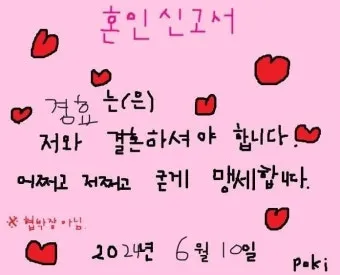 혼인신고서
경효는(은)
저와 결혼하셔야 합니다.
어쩌고 저쩌고 굳게 맹세합니다.
※협박장 아님.
2024년 6월 10일
poki